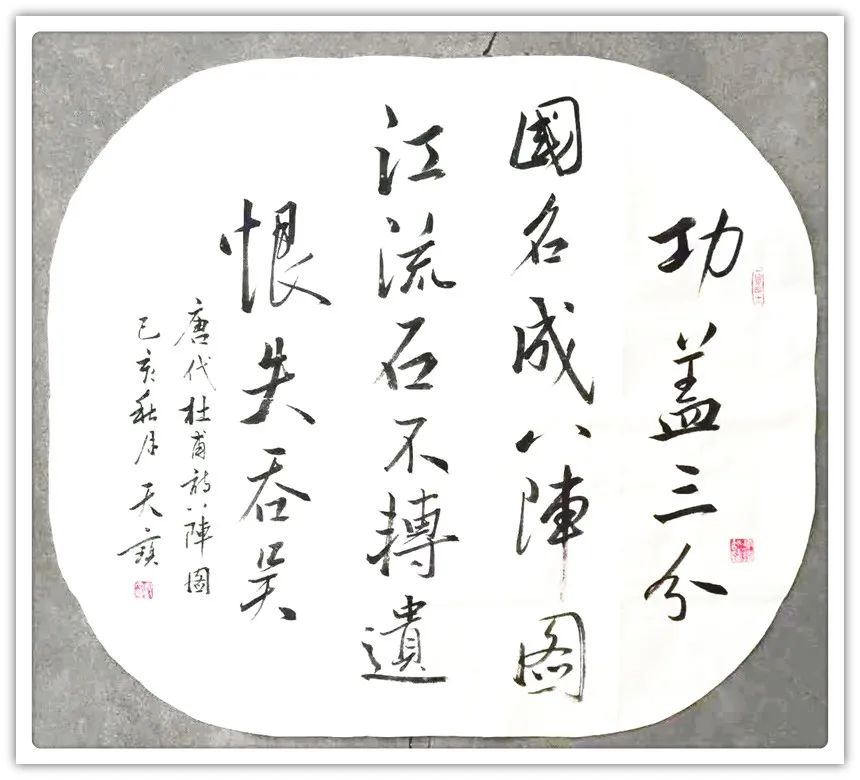 功盖三分
國名成八陣图
江流石不摶遺
恨失吞吴
唐代杜甫詩八陣圖
己亥秋月天